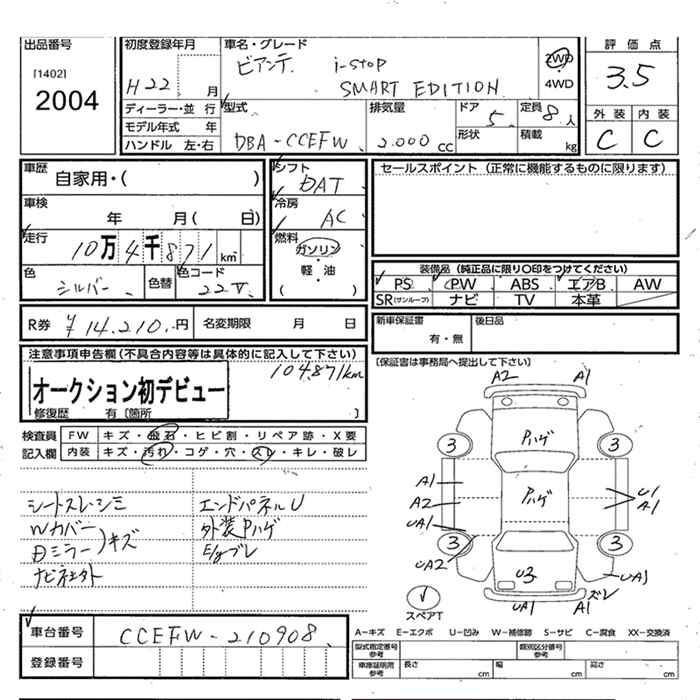 出品番号
[1402]
2004
初度登録年月
H22 月
ディーラー・並 行
モデル年式 年
ハンドル 左・右
車名・グレード
ビアンテ i-stop
SMART EDITION
2WD
・
4WD
型式
DBA-CCEFW
排気量
2.000 cc
ドア
5
形状
定員
8人
積載
kg
評価点
3.5
外装 内装
C C
車歴
自家用・( )
車検
年 月( 日)
走行
10万4千871 km
色
シルバー
色替
色コード
22V
シフト
DAT
冷房
AC
燃料
ガソリン
・
軽・油
( )
セールスポイント (正常に機能するものに限ります)
装備品 (純正品に限り○印をつけてください)
PS PW ABS エアB AW
SR(サンルーフ) ナビ TV 本革
R券 ¥14.210.円 名変期限 月 日
新車保証書
有・無
後日品
[保証書は事務局へ提出して下さい]
注意事項申告欄(不具合内容等は具体的に記入して下さい)
104871km
オークション初デビュー
修復歴 有〔箇所 〕
検査員
記入欄
FW キズ・飛石・ヒビ割・リペア跡・X要
内装 キズ・汚れ・コゲ・穴・スレ・キレ・破レ
シートスレ・シミ
Wカバー
Dミラー)キズ
ナビ社外
エンドパネルU
外装Pハゲ
E/gブレ
A2 A1
Pハゲ
3 3
A1
A2
UA1
Pハゲ
U1
A1
3 3
UA2
U3
UA1
UA1
A1
ズレ
スペアT
車台番号 CCEFW-210908
登録番号
A-キズ E-エクボ U-凹み W-補修跡 S-サビ C-腐食 XX-交換済
型式指定番号
参考
類別区分番号
参考
車庫証明用
参考
長さ cm 幅 cm 高さ cm